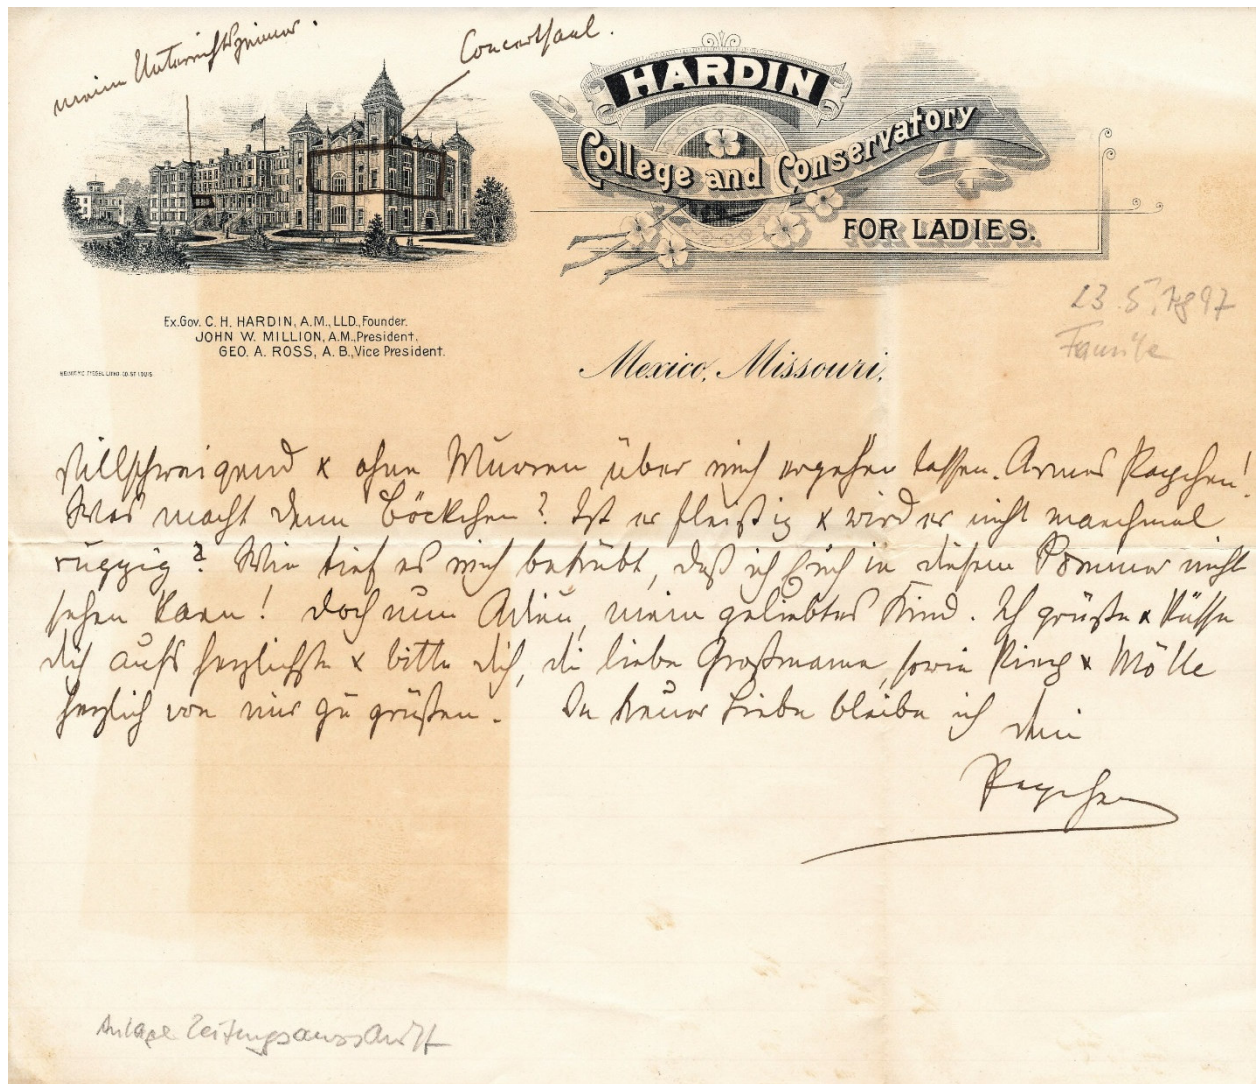 meine Unterrichtszimmer.
Concertsaal.
HARDIN
College and Conservatory
FOR LADIES.
23.5.1897
Familie
Ex.Gov. C. H. HARDIN, A.M., LLD., Founder.
JOHN W. MILLION, A.M., President.
GEO. A. ROSS, A. B., Vice President.
Mexico, Missouri,
stillschweigend x ohne Murren über mich ergehen lassen. Armes Papchen!
Was macht denn Böckchen? Ist er fleißig x wird er nicht manchmal
ruppig? Wie tief es mich betrübt, daß ich Euch in diesem Sommer nicht
sehen kann! Doch nun Adieu, mein geliebtes Kind. Ich grüße x küsse
dich aufs herzlichste x bitte dich, die liebe Großmama, sowie x Mölle
herzlich von mir zu grüßen. In treuer Liebe bleibe ich dein
Papchen
Anlage Zeitungsausschnitt